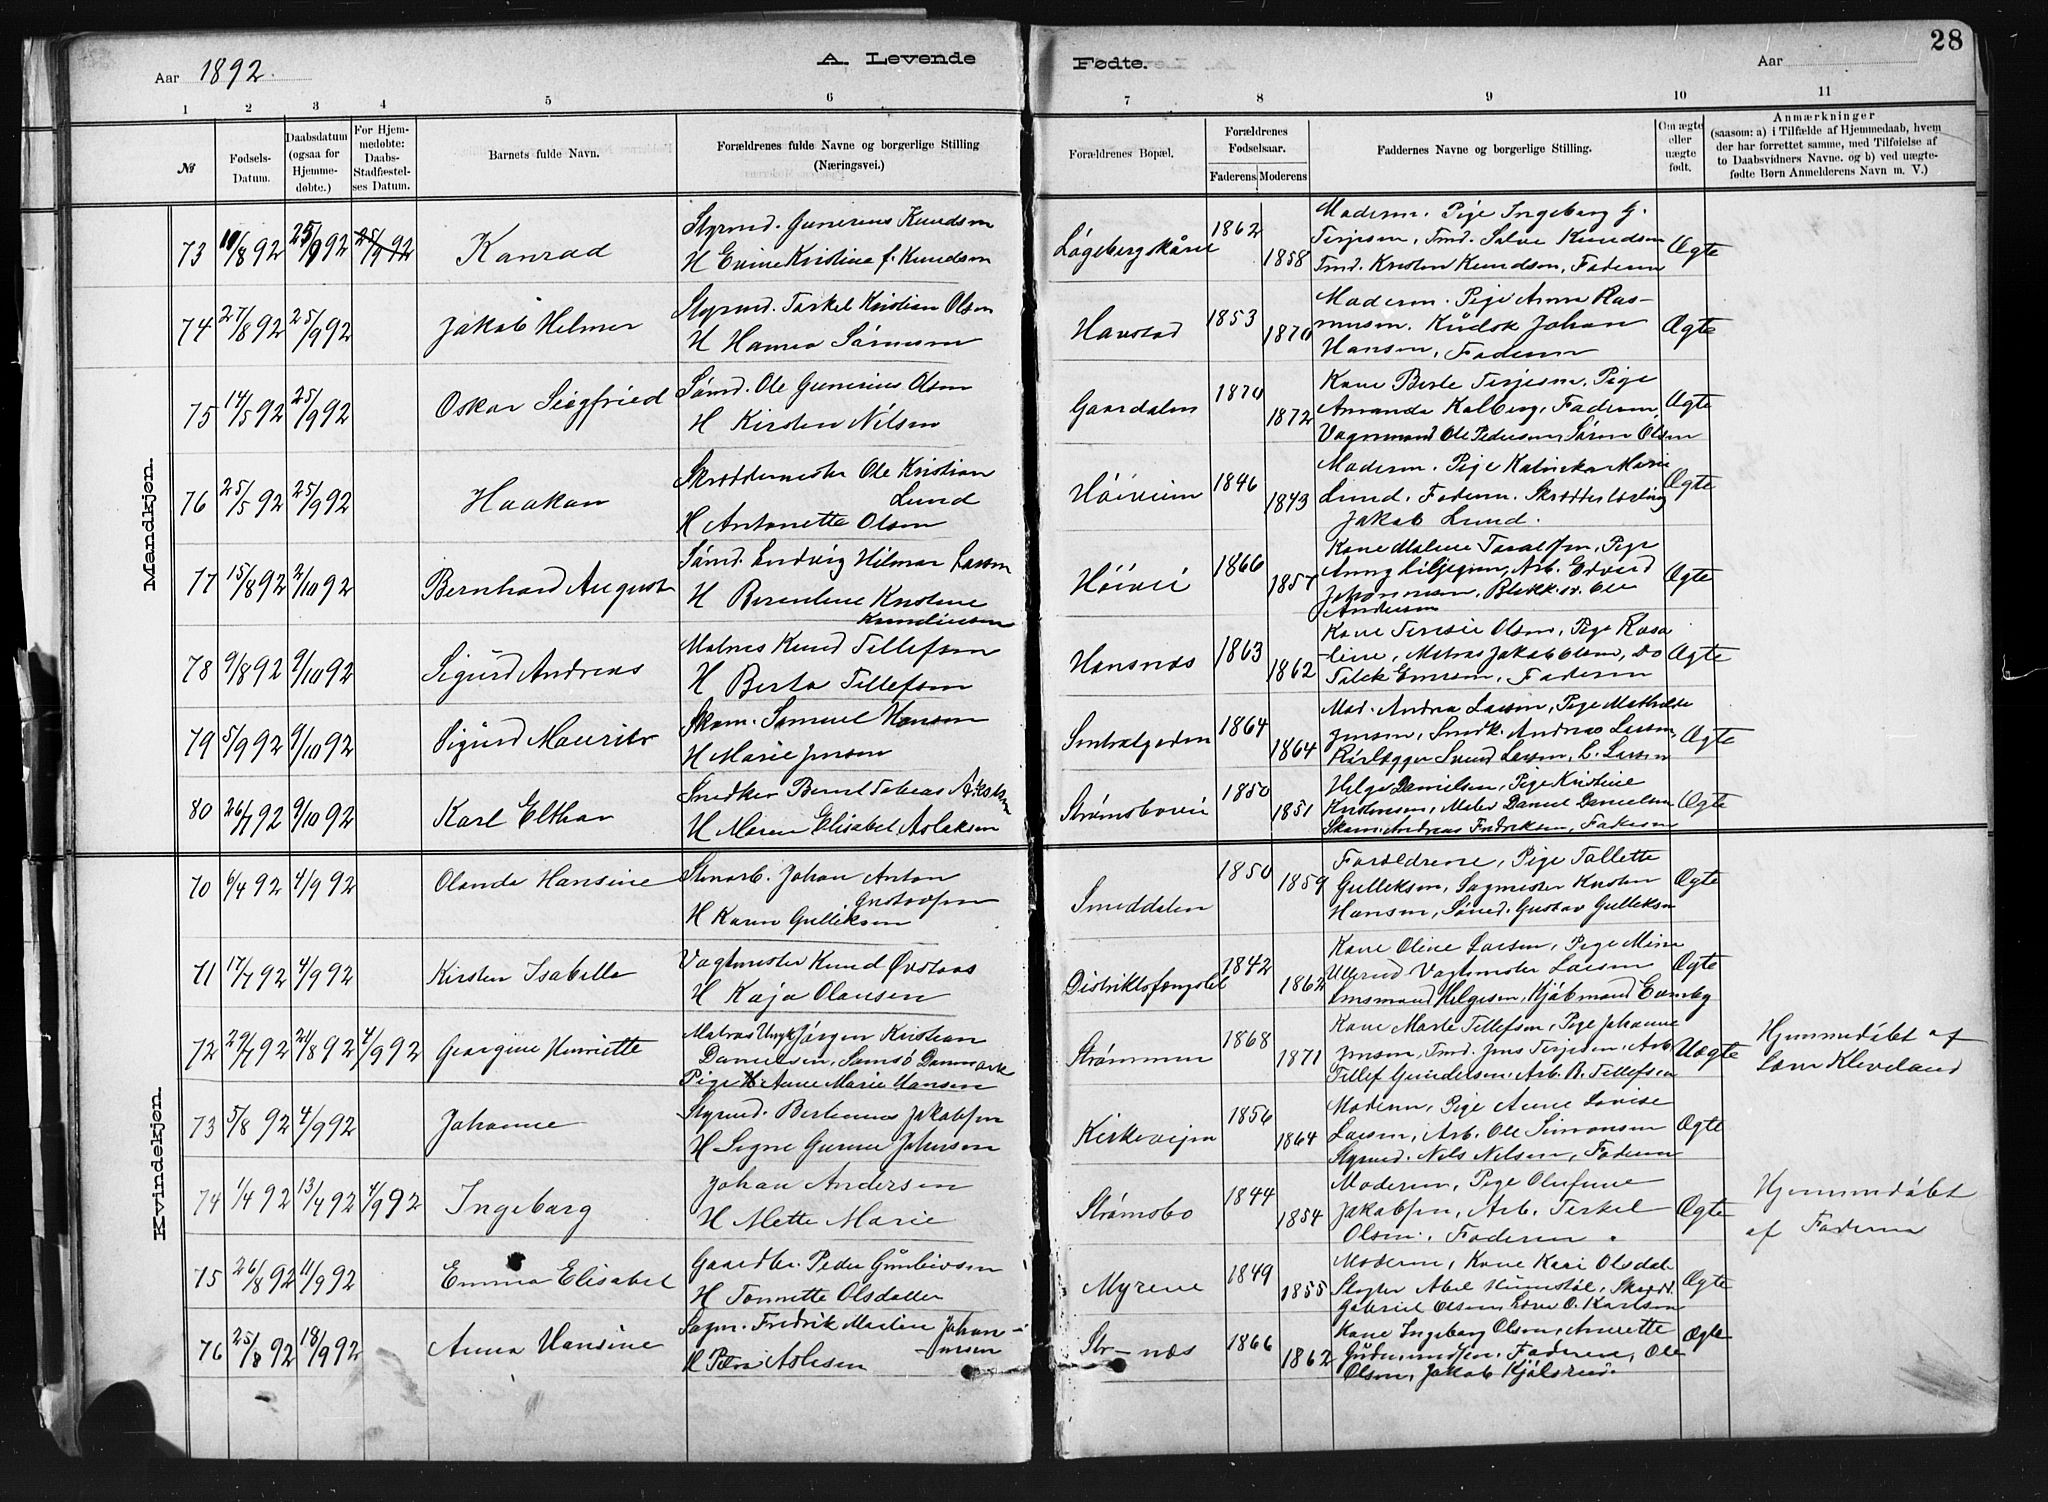 Aar 1892.
A. Levende
Fødte.
Aar
28
1 2 3 4 5 6 7 8 9 10 11
№
Fødsels-
Datum.
Daabsdatum
(ogsaa for
Hjemme-
døbte.)
For Hjem-
medøbte:
Daabs-
Stadfæstel-
ses Datum.
Barnets fulde Navn.
Forældrenes fulde Navne og borgerlige Stilling
(Næringsvei.)
Forældrenes Bopæl.
Forældrenes
Fødselsaar.
Faderens Moderens
Faddernes Navne og borgerlige Stilling.
Om ægte
eller
uægte
født.
Anmærkninger
(saasom: a) i Tilfælde af Hjemmedaab, hvem
der har forrettet samme, med Tilføielse af
to Daabsvidners Navne. og b) ved uægte-
fødte Børn Anmelderens Navn m. V.)
Mandkjøn.
73 25/9 92 25/9 92 Konrad
Styrmd. Gunerius Knudsen
H Kristine f. Knudsen
1862 1858
Moderen. Pige Ingeborg G.
Terjesen, Tmd. Salve Knudsen
Tmd. Kristen Knudsen, Faderen
Ægte
74 27/8 92 25/9 92 Jakob Hilmer
Styrmd. Terkel Kristian Olsen
H Hanna Sørensen
Havstad 1853 1870
Moderen. Pige Anna Ras-
musen. Johan
Hansen, Faderen
Ægte
75 14/5 92 25/9 92 Oskar Siegfried
Sømd. Ole Gunerius Olsen
H Kirsten Nilsen
Gaardalen 1870 1872
Kone Berte Terjesen, Pige
Amanda Kalberg, Faderen,
Vognmand Ole Pedersen, Søren Olsen
Ægte
76 25/5 92 25/9 92 Haakon
Skræddermester Ole Kristian
Lund
H Antonette Olsen
Høiveien 1846 1843
Moderen. Pige Katinka Marie
Lund. Faderen. Skrædderlærling
Jakob Lund.
Ægte
77 15/8 92 2/10 92 Bernhard August
Sømd. Ludvig Hilmar Larsen
H Berentine Kristine
Knudsen
Høivei 1866 1857
Kone Malene Taralsen, Pige
Arb. Edvard
Johannesen, Ole
Andersen
Ægte
78 9/8 92 9/10 92 Sigurd Andreas
Matros Knud Tellefsen
H Berta Tellefsen
Hansnæs 1863 1862
Kone Teresie Olsen, Pige Rosa
-line, Matros Jakob Olsen, Do
Faderen
Ægte
79 5/9 92 9/10 92 Sigurd Mauritz
Skom. Samuel Hansen
H Marie Jensen
Sentralgaden 1864 1864
Mod. Andrea Larsen, Pige Mathilde
Jensen, Smdk. Andreas Larsen,
Rørlægger Svend Larsen, L. Larsen
Ægte
80 26/7 92 9/10 92 Karl Elthar
Snedker Bernt Tobias Akselsen
H Maren Elisabet Aslaksen
Strømsbovei 1850 1851
Helge Danielsen, Pige Kristine
Kristensen, Maler Daniel Danielsen
Skom. Andreas Fredriksen, Faderen
Ægte
Kvindekjøn.
70 6/4 92 4/9 92 Olanda Hansine
Stenarb. Johan Anton
Gustavsen
H Karen Gulleksen
Smeddalen 1850 1859
Forældrene, Pige Tallette
Gulleksen, Sagmester Kristen
Hansen, Sømd. Gustav Gulleksen
Ægte
71 17/7 92 4/9 92 Kirsten Isabella
Vagtmester Knud Øvstaas
H Kaja Olausen
Distriktsfængslet 1842 1862
Kone Oline Larsen, Pige Mina
Ullerud Vagtmester Larsen
Helgesen, Kjøbmand Evensby
Ægte
72 29/7 92 21/8 92 4/9 92 Georgine Henriette
Matros Ungk Jørgen Kristian
Danielsen, Samsø Danmark
Pige Anne Marie Hansen
Strømmen 1868 1871
Kone Marte Tellefsen, Pige Johanne
Jensen, Tmd. Jens Terjesen, Arb.
Tellef Gundersen, Arb. B. Tellefsen
Uægte
Hjemmedøbt af
Lars Kleveland
73 5/8 92 4/9 92 Johanne
Styrmd. Bertinius Jakobsen
H Signe Gurine Johnsen
Kirkeveien 1856 1864
Moderen, Pige Anne Lovise
Larsen, Arb. Ole Simonsen
Styrmd. Nils Nilsen, Faderen
Ægte
74 1/4 92 13/4 92 4/9 92 Ingeborg
Johan Andersen
H Mette Marie
Strømsbo 1844 1854
Moderen, Pige Olufine
Jakobsen, Arb. Terkel
Olsen, Faderen.
Ægte
Hjemmedøbt
af Faderen
75 26/8 92 11/9 92 Emma Elisabet
Gaardbr. Peder Gunleivsen
H Tonnette Olsdatter
Myrene 1849 1855
Moderen, Kone Kari Olsdat.
Slagter Abel Skrædd.
Gabriel Olsen O. Karlsen
Ægte
76 25/8 92 18/9 92 Anna Hansine
Sagm. Fredrik Martin Johan-
-nesen
H Petra Aslesen
Str-næs 1866 1862
Kone Ingeborg Olsen, Anette
Gudmundsen, Faderen, Ole
Olsen, Jakob
Ægte